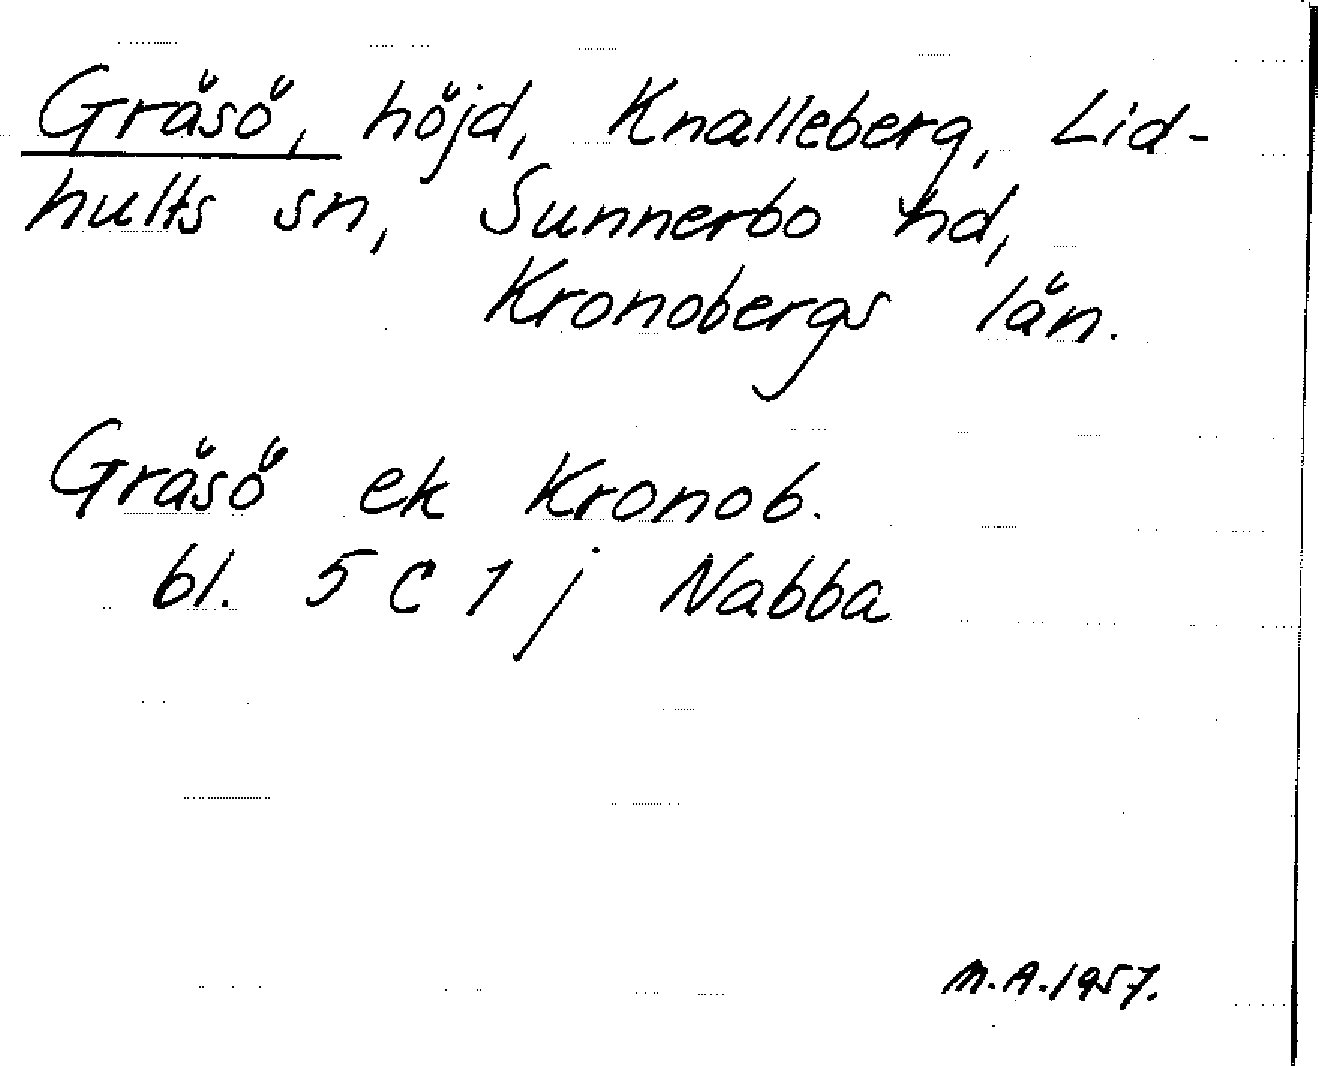 Gräsö, höjd, Knalleberg, Lid-
hults sn, Sunnerbo hd,
Kronobergs län.
Gräsö ek Kronob.
bl. 5 C 1 j Nabba
M.A.1957.